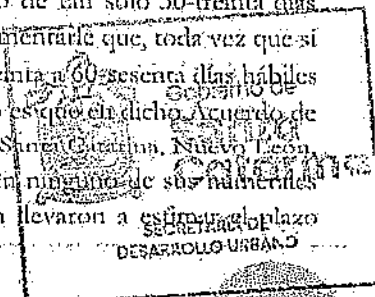 de tan solo 30-treinta días
mentarle que, toda vez que si
einta a 60-sesenta días hábiles
es que en dicho Acuerdo de
Santa Catarina, Nuevo León,
en ninguno de sus numerales
llevaron a estimar el plazo
Gobierno de
Santa
Catarina
SECRETARÍA DE
DESARROLLO URBANO